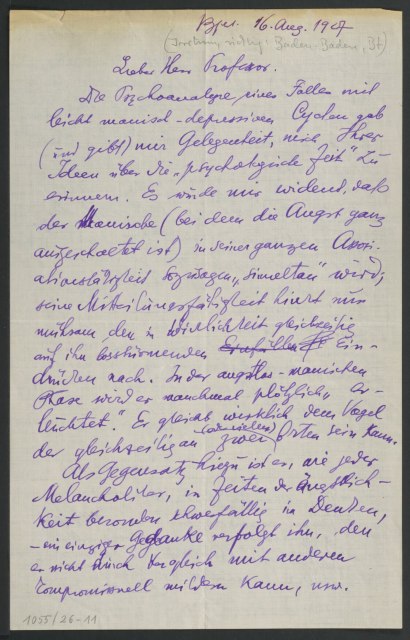 Bpest. 16. Aug. 1927
Baden-Baden,
Lieber Herr Professor.
Die Psychoanalyse eines Falles mit
leicht manisch-depressiven Cyclen gab
(und gibt) mir Gelegenheit, mich Ihrer
Ideen über die „psychologische Zeit" zu
erinnern. Es wurde mir evident, daß
der Manische (bei dem die Angst ganz
ausgeschaltet ist) in seiner ganzen Assozi-
ationstätigkeit sozusagen „simultan" wird;
seine Mitteilungsfähigkeit hinkt nur
mühsam den in Wirklichkeit gleichzeitig
auf ihn losstürmenden Ein-
drücken nach. In der angstlos-manischen
Phase wird er manchmal plötzlich „er-
leuchtet." Er gleicht wirklich dem Vogel
der gleichzeitig an zwei (oder vielen) Orten sein kann.
Als Gegensatz hiezu ist er, wie jeder
Melancholiker, in Zeiten der Ängstlich-
keit besonders schwerfällig im Denken,
– ein einziger Gedanke verfolgt ihn, den
er nicht durch Vergleich mit anderen
kompromissuell mildern kann, usw.
1055/26-11